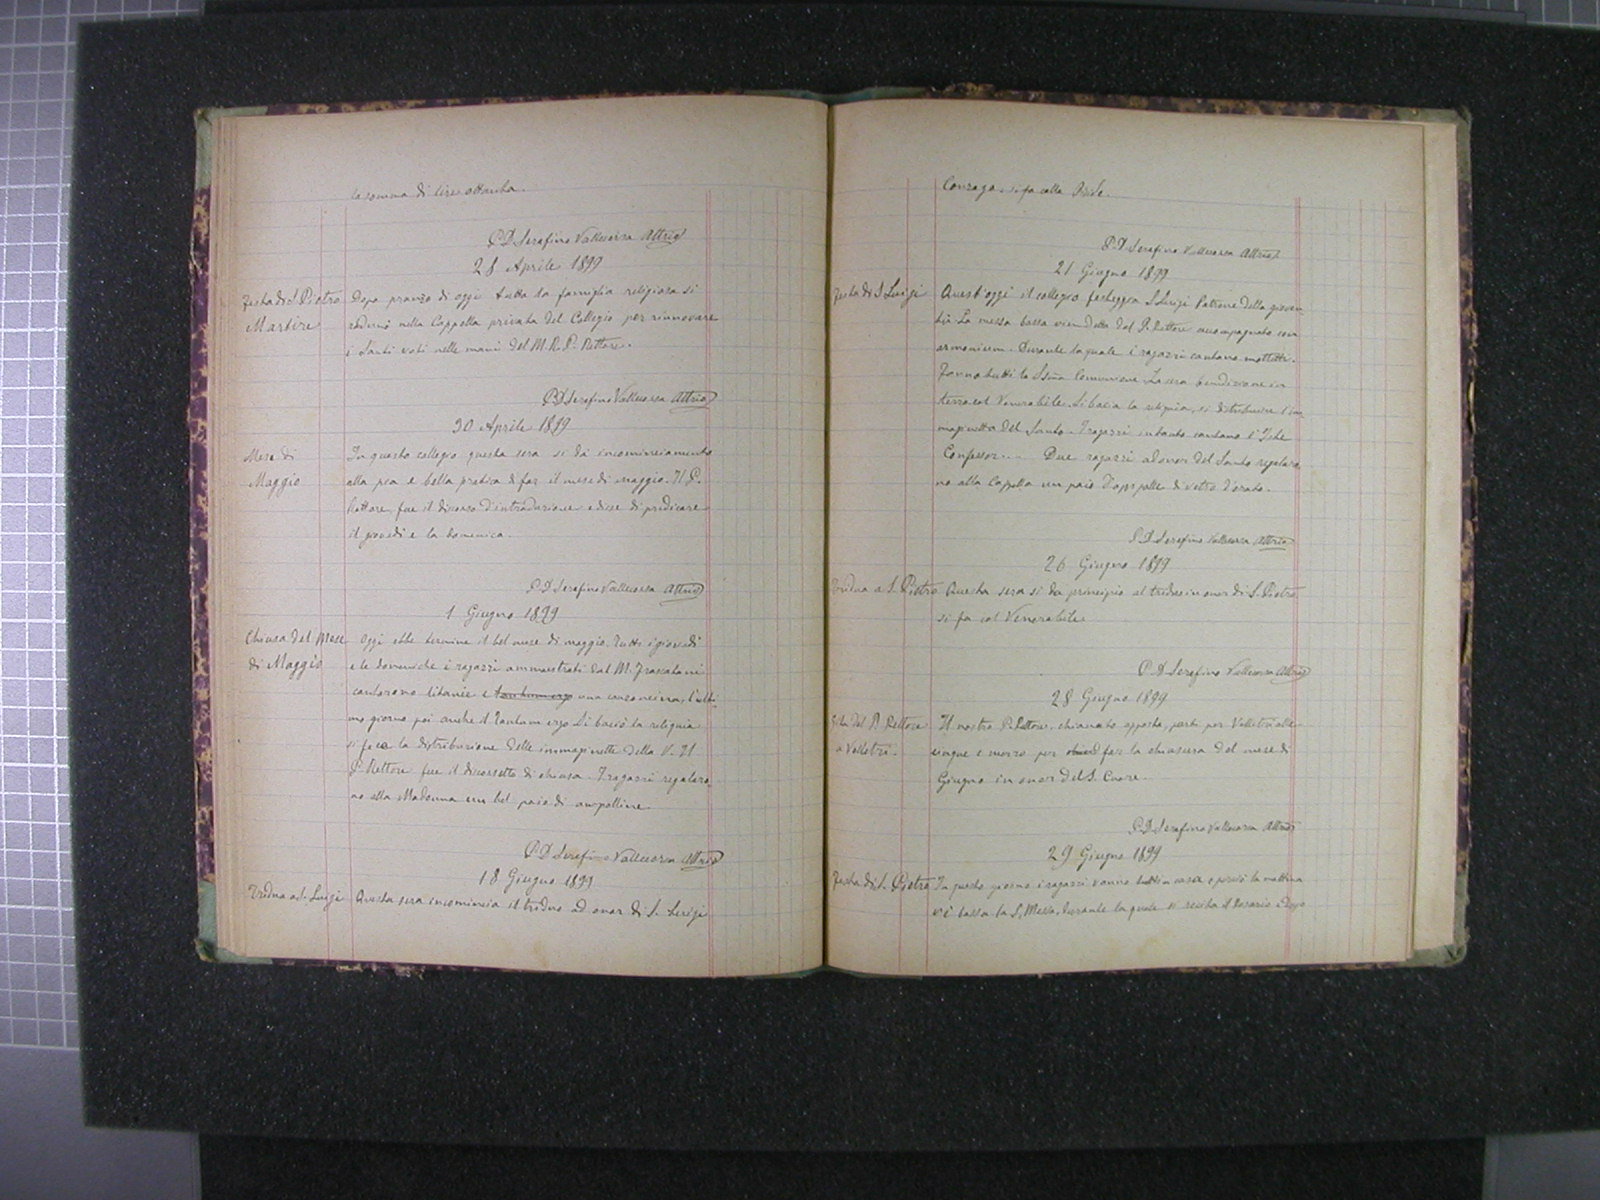 la somma di lire ottanta.
P. D. Serafino Vallecorsa Attrio
28 Aprile 1899
Festa di S. Pietro Martire
Dopo pranzo di oggi tutta la famiglia religiosa si
radunò nella Cappella privata del Collegio per rinnovare
i Santi voti nelle mani del M. R. P. Rettore.
P. D. Serafino Vallecorsa Attrio
30 Aprile 1899
Mese di Maggio
In questo collegio questa sera si dà incominciamento
alla pia e bella pratica di far il mese di maggio. Il P.
Rettore fece il discorso d'introduzione e disse di predicare
il giovedì e la domenica.
P. D. Serafino Vallecorsa Attrio
1 Giugno 1899
Chiusa del Mese di Maggio
Oggi ebbe termine il bel mese di maggio. Tutti i giovedì
e le domeniche i ragazzi ammaestrati dal M.
cantarono litanie e tantum ergo una canzoncina, l'ulti-
mo giorno poi anche il Tantum ergo. Si baciò la reliquia
si fece la distribuzione delle immaginette della V. Il
P. Rettore fece il discorsetto di chiusa. I ragazzi regalaro-
no alla Madonna un bel paio di ampolline
P. D. Serafino Vallecorsa Attrio
18 Giugno 1899
Triduo a S. Luigi
Questa sera incomincia il triduo ad onor di S. Luigi
Conzaga. si fa colla
P. D. Serafino Vallecorsa Attrio
21 Giugno 1899
Festa di S. Luigi
Quest'oggi il collegio festeggia S. Luigi Patrone della gioven-
tù. La messa bassa vien detta dal P. Rettore accompagnata con
armonium. Durante la quale i ragazzi cantano mottetti.
Fanno tutti la S.sma Comunione. La sera benedizione in
terra col Venerabile. Si bacia la reliquia, si distribuisce l'im-
maginetta del Santo. I ragazzi intanto cantano l'Iste
Confessor.... Due ragazzi ad onor del Santo regalaro-
no alla Cappella un paio di vetro dorato.
P. D. Serafino Vallecorsa Attrio
26 Giugno 1899
Triduo a S. Pietro
Questa sera si dà principio al triduo in onor di S. Pietro
si fa col Venerabile.
P. D. Serafino Vallecorsa Attrio
28 Giugno 1899
Gita del P. Rettore a Velletri.
Il nostro P. Rettore, chiamato apposta, partì per Velletri alle
cinque e mezzo per far la chiusura del mese di
Giugno in onor del S. Cuore.
P. D. Serafino Vallecorsa Attrio
29 Giugno 1899
Festa di S. Pietro
In questo giorno i ragazzi vanno tutti in casa e perciò la mattina
vi è bassa la S. Messa, durante la quale si recita il Rosario e dopo